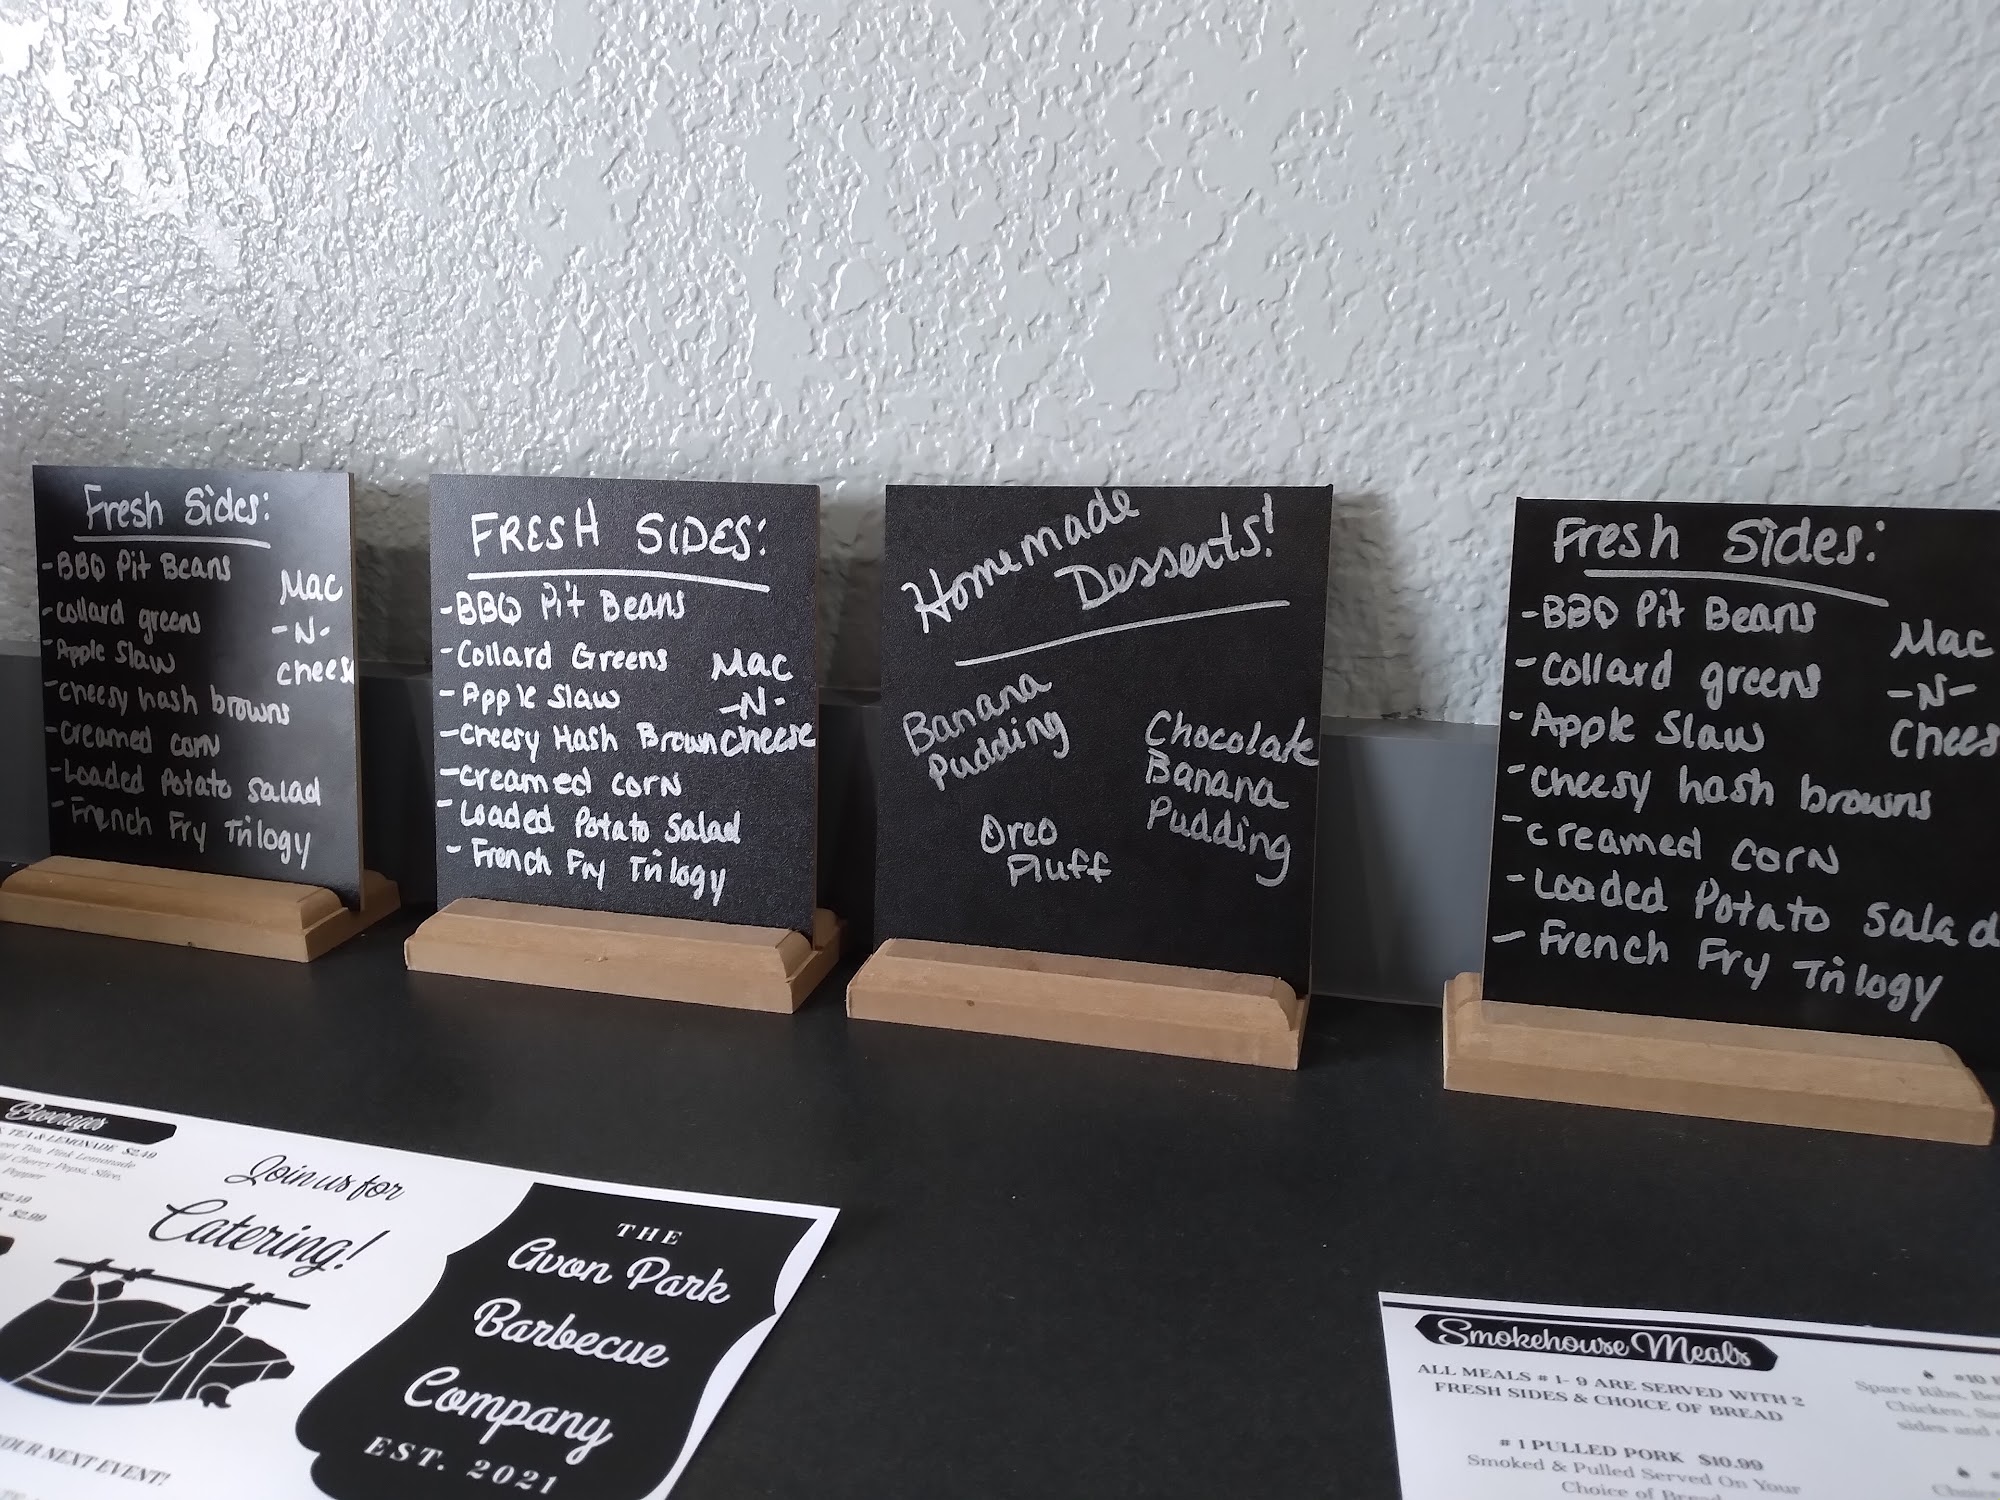 Fresh Sides:
-BBQ Pit Beans
-collard greens
-Apple Slaw
-cheesy hash browns
-creamed corn
-Loaded Potato Salad
-French Fry Trilogy
Mac
-N-
cheese
FRESH SIDES:
-BBQ Pit Beans
-Collard Greens
-Apple Slaw
-cheesy Hash Brown
-creamed corn
-Loaded Potato Salad
-French Fry Trilogy
Mac
-N-
cheese
Homemade
Desserts!
Banana
Pudding
Chocolate
Banana
Pudding
Oreo
Fluff
Fresh Sides:
-BBQ Pit Beans
-collard greens
-Apple Slaw
-cheesy hash browns
-creamed corn
-Loaded Potato Salad
-French Fry Trilogy
Mac
-N-
Chees
Beverages
TEA & LEMONADE $2.49
Tea, Pink Lemonade
Cherry Pepsi, Slice,
Pepper
$2.49
$2.99
Join us for
Catering!
YOUR NEXT EVENT!
THE
Avon Park
Barbecue
Company
EST. 2021
Smokehouse Meals
ALL MEALS # 1- 9 ARE SERVED WITH 2
FRESH SIDES & CHOICE OF BREAD
# 1 PULLED PORK $10.99
Smoked & Pulled Served On Your
Choice of Bread
#10
Spare Ribs,
Chicken,
sides and